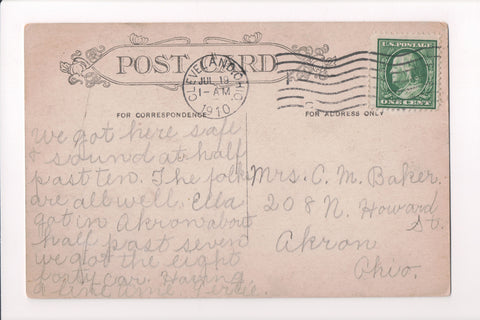 POST CARD
U.S. POSTAGE
ONE CENT
CLEVELAND, OHIO.
JUL 19
1-AM
1910
FOR CORRESPONDENCE
FOR ADDRESS ONLY
we got here safe
& sound at half
past ten. The folks
are all well. Ella
got in Akron about
half past seven
we got the eight
forty car. Having
a fine time.
Mrs. C. M. Baker.
208 N. Howard
St.
Akron
Ohio.